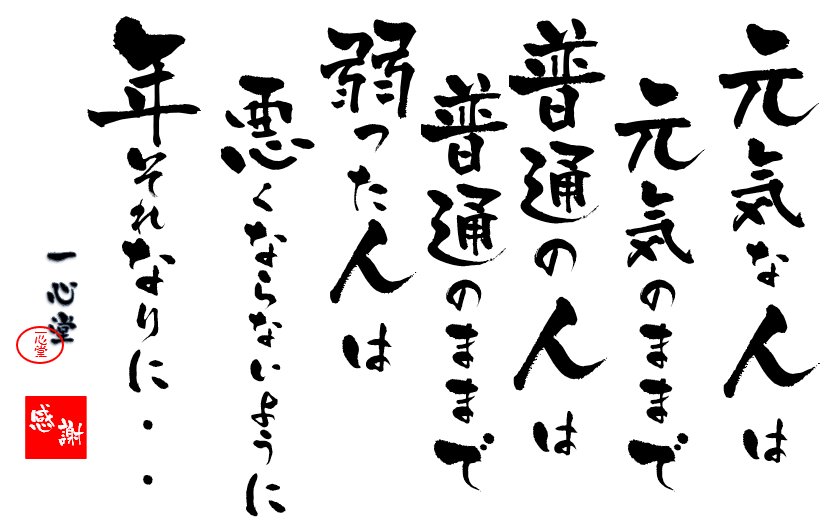 元気な人は
元気のままで
普通の人は
普通のままで
弱った人は
悪くならないように
年それなりに・・
一心堂
一心堂
感謝